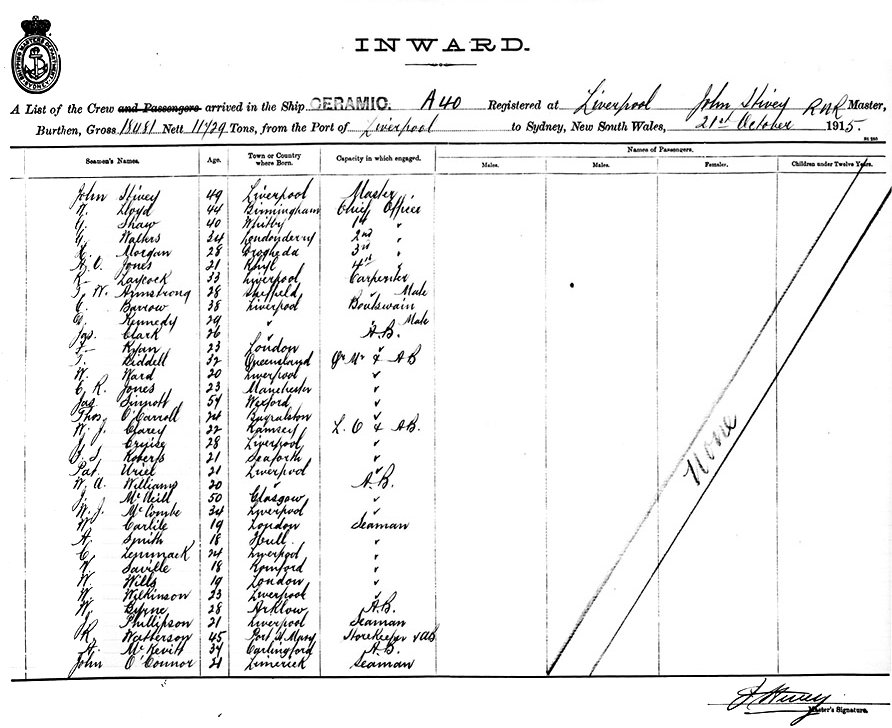 SHIPPING MASTER'S DEPARTMENT SYDNEY
INWARD.
A List of the Crew and Passengers arrived in the Ship CERAMIC. A 40 Registered at Liverpool John Stivey RNR Master,
Burthen, Gross 18481 Nett 11729 Tons, from the Port of Liverpool to Sydney, New South Wales, 21st October 1915.
Seamen's Names. Age. Town or Country where Born. Capacity in which engaged. Names of Passengers.
Males. Males. Females. Children under Twelve Years.
John Stivey 49 Liverpool Master
Lloyd 44 Birmingham Chief Officer
Shaw 40 Whitby 1st "
Walters 34 Londonderry 2nd "
Morgan 28 Drogheda 3rd "
Jones 21 Rhyl 4th "
Laycock 33 Liverpool Carpenter
W. Armstrong 28 Sheffield " Mate
C. Barrow 38 Liverpool Boatswain
Kennedy 29 " " Mate
Jas. Clark 26 " A.B.
Ryan 23 London "
Biddell 32 Queensland Qr Mr & AB
W. Ward 20 Liverpool "
C. R. Jones 23 Manchester "
Jas. Sinnott 54 Wexford "
Thos. O'Carroll 24 Bagnalston "
W. J. Clarey 22 Ramsey L. O & AB.
Cruise 28 Liverpool "
Roberts 21 Seaforth "
Pat. Uriel 21 Liverpool "
W. A. Williams 20 " A.B.
J. McNeill 50 Glasgow "
W. J. McCombe 34 Liverpool "
W. Carlile 19 London Seaman
A. Smith 18 Hull "
C. Lemmack 24 Liverpool "
Saville 18 Romford "
W. Wills 19 London "
W. Wilkinson 23 Liverpool "
W. Byrne 28 Arklow A.B.
J. Phillipson 21 Liverpool Seaman
R. Watterson 45 Port St Mary Storekeeper & AB
A. McKevitt 34 Carlingford A.B.
John O'Connor 21 Limerick Seaman
None
J Stivey
Master's Signature.